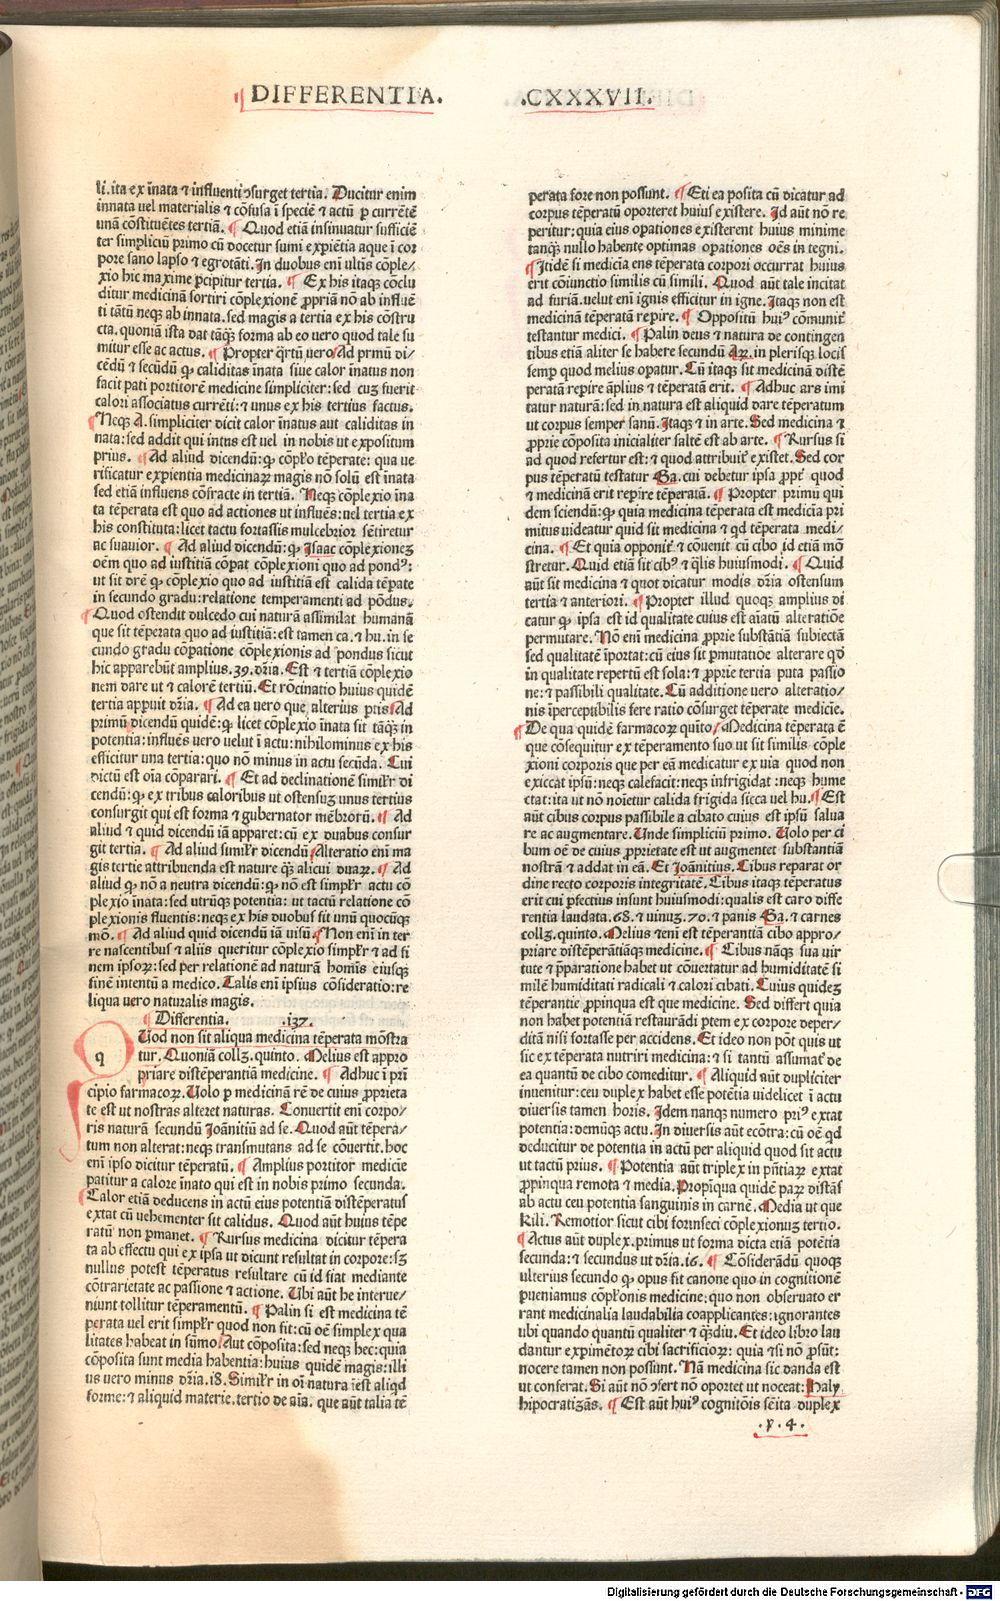 ¶ DIFFERENTIA. .CXXXVII.
li. ita ex īnata ⁊ influenti ↄsurget tertia. Ducitur enim
innata vel materialis ⁊ cōfusa ī speciē ⁊ actū p currētē
unā cōstituētes tertiā. ¶ Quod etiā insinuatur sufficiē
ter simpliciū primo cū docetur sumi expiētia aque ī cor
pore sano lapso ⁊ egrotāti. In duobus eni ultīs cōple/
xio hic maxime pcipitur tertia. ¶ Ex his itaqꝫ cōclu
ditur medicinā sortiri cōplexionē ppriā nō ab influē
ti tātū neqꝫ ab innata. sed magis a tertia ex his cōstru
cta. quoniā ista dat tāqꝫ forma ab eo vero quod tale su
mitur esse ac actus. ¶ Propter qrtū uero/Ad prmū di/
cēdū ⁊ secūdū ꝙ caliditas īnata siue calor īnatus non
facit pati portitorē medicine simpliciter: sed cuꝫ fuerit
calori associatus currēti: ⁊ unus ex his tertius factus.
¶ Neqꝫ A. simpliciter dicit calor īnatus aut caliditas in
nata: sed addit qui intus est uel in nobis ut expositum
prius. ¶ Ad aliud dicendū: ꝙ cōplo tēperate: qua ue
rificatur expientia medicinaꝝ magis nō solū est īnata
sed etiā influens cōfracte in tertiā. Neqꝫ cōplexio īna
ta tēperata est quo ad actiones ut influēs: uel tertia ex
his constituta: licet tactu fortassis mulcebrior sētiretur
ac suauior. ¶ Ad aliud dicendū: ꝙ Isaac cōplexioneꝫ
oēm quo ad iustitiā cōpat cōplexioni quo ad pondꝰ:
ut sit drē ꝙ cōplexio quo ad iustitiā est calida tēpate
in secundo gradu: relatione temperamenti ad pōdus.
¶ Quod ostendit dulcedo cui naturā assimilat humanā
que sit tēperata quo ad iustitiā: est tamen ca. ⁊ hu. in se
cundo gradu cōpatione cōplexionis ad pondus sicut
hic apparebūt amplius. 39. dr̄ia. Est ⁊ tertiā cōplexio
nem dare ut ⁊ calorē tertiū. Et rōcinatio huius quidē
tertia appuit dr̄ia. ¶ Ad ea vero que alterius ptis/Ad
primū dicendū quidē: ꝙ licet cōplexio īnata sit tāqꝫ in
potentia: influēs uero uelut ī actu: nihilominus ex his
efficitur una tertia: quo nō minus in actu secūda. Cui
dictū est oīa cōparari. ¶ Et ad declinationē similr di
cendū: ꝙ ex tribus caloribus ut ostensuꝫ unus tertius
consurgit qui est forma ⁊ gubernator mēbrorū. ¶ Ad
aliud ⁊ quid dicendū iā apparet: cū ex duabus consur
git tertia. ¶ Ad aliud sumilr dicendū/Alteratio eni ma
gis tertie attribuenda est nature qꝫ alicui duaꝝ. ¶ Ad
aliud ꝙ nō a neutra dicendū: ꝙ nō est simplr actu cō
plexio īnata: sed utrūqꝫ potentia: ut tactū relatione cō
plexionis fluentis: neqꝫ ex his duobus sit unū quocūqꝫ
mō. ¶ Ad aliud quid dicendū iā uisū/¶ Non eni in ter
re nascentibus ⁊ aliis queritur cōplexio simplr ⁊ ad si
nem ipsoꝝ: sed per relationē ad naturā homīs eiusqꝫ
finē intentū a medico. Talis eni ipsius cōsideratio: re
liqua uero naturalis magis.
¶ Differentia. .137.
q Uod non sit aliqua medicina tēperata mōstra
tur. Quoniā collꝫ. quinto. Melius est appro
priare distēperantiā medicine. ¶ Adhuc ī prī
cipio farmacoꝝ. Uolo p medicinā rē de cuius pprieta
te est ut nostras alteret naturas. Conuertit eni corpo/
ris naturā secundū Joānitiū ad se. Quod aūt tēpera/
tum non alterat: neqꝫ transmutans ad se cōuertit. hoc
eni ipso dicitur tēperatū. ¶ Amplius portitor medicie
patitur a calore īnato qui est in nobis primo secunda.
¶ Calor etiā deducens in actū eius potentiā distēperatus
extat cū uehementer sit calidus. Quod aūt huius tēpe
ratū non pmanet. ¶ Rursus medicina dicitur tēpera
ta ab effectu qui ex ipsa ut dicunt resultat in corpore: sꝫ
nullus potest tēperatus resultare cū id fiat mediante
cōtrarietate ac passione ⁊ actione. Ubi aūt he interue/
niunt tollitur tēperamentū. ¶ Palin si est medicina tē
perata uel erit simplr quod non fit: cū oē simplex qua
litates habeat in sūmo/Aut cōposita: sed neqꝫ hec: quia
cōposita sunt media habentia: huius quidē magis: illi
us uero minus dr̄ia. 18. Similr in oī natura īest aliqd
forme: ⁊ aliquid materie. tertio de aīa. que aūt talia tē
perata fore non possunt. ¶ Eti ea posita cū dicatur ad
corpus tēperatū oporteret huius existere. Id aūt nō re
peritur: quia eius opationes existerent huius minime
tanqꝫ nullo habente optimas operationes oēs in tegni.
¶ Itidē si medicīa ens tēperata corpori occurrat huius
erit cōiunctio similis cū simili. Quod aūt tale incitat
ad furiā. uelut eni ignis efficitur in igne. Itaqꝫ non est
medicinā tēperatā repire. ¶ Oppositū huiꝰ cōmunit
testantur medici. ¶ Palin deus ⁊ natura de contingen
tibus etiā aliter se habere secundū Aꝝ. in plerisqꝫ locis
semp quod melius opatur. Cū itaqꝫ sit medicinā distē
peratā repire āplius ⁊ tēperatā erit. ¶ Adhuc ars imi
tatur naturā: sed in natura est aliquid dare tēperatum
ut corpus semper sanū. Itaqꝫ ⁊ in arte. Sed medicina ⁊
pprie cōposita inicialiter saltē est ab arte. ¶ Rursus si
ad quod refertur est: ⁊ quod attribuit existet. Sed cor
pus tēperatū testatur Ga. cui debetur ipsa ppt quod
⁊ medicinā erit repire tēperatā. ¶ Propter primū qui
dem sciendū: ꝙ quia medicina tēperata est medicīa pri
mitus uideatur quid sit medicina ⁊ qd tēperata medi/
cina. ¶ Et quia opponit ⁊ cōuenit cū cibo id etiā mō
stretur. Quid etiā sit cibꝰ ⁊ qlis huiusmodi. ¶ Quid
aūt sit medicina ⁊ quot dicatur modis dr̄ia ostensum
tertia ⁊ anteriori. ¶ Propter illud quoqꝫ amplius di
catur ꝙ ipsa est id qualitate cuius est aīatū alteratiōe
permutare. Nō eni medicina pprie substātiā subiectā
sed qualitatē īportat: cū eius sit pmutatiōe alterare qd
in qualitate repertū est sola: ⁊ pprie tertia puta passio
ne: ⁊ passibili qualitate. Cū additione uero alteratio/
nis īperceptibilis fere ratio cōsurget tēperate medicīe.
¶ De qua quidē farmacoꝝ quīto/Medicina tēperata ē
que cōsequitur ex tēperamento suo ut sit similis cōple
xioni corporis que per eā medicatur ex uia quod non
exiccat ipsū: neqꝫ calefacit: neqꝫ infrigidat: neqꝫ hume
ctat: ita ut nō noīetur calida frigida sicca uel hu. ¶ Est
aūt cibus corpus passibile a cibato cuius est ipsū salua
re ac augmentare. Unde simpliciū primo. Uolo per ci
bum oē de cuius pprietate est ut augmentet substantiā
nostrā ⁊ addat in eā. Et Joānitius. Cibus reparat or
dine recto corporis integritatē. Cibus itaqꝫ tēperatus
erit cui pfectius insunt huiusmodi: qualis est caro diffe
rentia laudata. 68. ⁊ uinuꝫ. 70. ⁊ panis Ga. ⁊ carnes
collꝫ. quinto. Melius ⁊eni est tēperantiā cibo appro/
priare distēperātiāqꝫ medicine. ¶ Cibus nāqꝫ sua uir
tute ⁊ pparatione habet ut cōuertatur ad humiditatē si
milē humiditati radicali ⁊ calori cibati. Cuius quideꝫ
tēperantie ppinqua est que medicine. Sed differt quia
non habet potentiā restaurādi ptem ex corpore deper/
ditā nisi fortasse per accidens. Et ideo non pōt quis ut
sic ex tēperata nutriri medicina: ⁊ si tantū assumat de
ea quantū de cibo comeditur. ¶ Aliquid aūt dupliciter
inuenitur: ceu duplex habet esse potētia uidelicet ī actu
diuersis tamen horis. Idem nanqꝫ numero priꝰ extat
potentia: demūqꝫ actu. In diuersis aūt ecōtra: cū oē qd
deducitur de potentia in actū per aliquid quod sit actu
ut tactū prius. ¶ Potentia aūt triplex in pn̄tiaꝝ extat
ppinqua remota ⁊ media. Propiqua quidē paꝝ distās
ab actu ceu potentia sanguinis in carnē. Media ut que
kili. Remotior sicut cibi forinseci cōplexionuꝫ tertio.
¶ Actus aūt duplex. primus ut forma dicta etiā potētia
secunda: ⁊ secundus ut dr̄ia. 16. ¶ Cōsiderādū quoqꝫ
ulterius secundo ꝙ opus sit canone quo in cognitionē
pueniamus cōplōnis medicine: quo non obseruato er
rant medicinalia laudabilia coapplicantes: ignorantes
ubi quando quantū qualiter ⁊ qꝫdiu. Et ideo libro lau
dantur expimētoꝝ cibi sacrificioꝝ: quia ⁊si nō psūt:
nocere tamen non possunt. Nā medicina sic danda est
ut conferat. Si aūt nō ↄfert nō oportet ut noceat: Haly
hipocratizās. ¶ Est aūt huiꝰ cognitōis sēita duplex